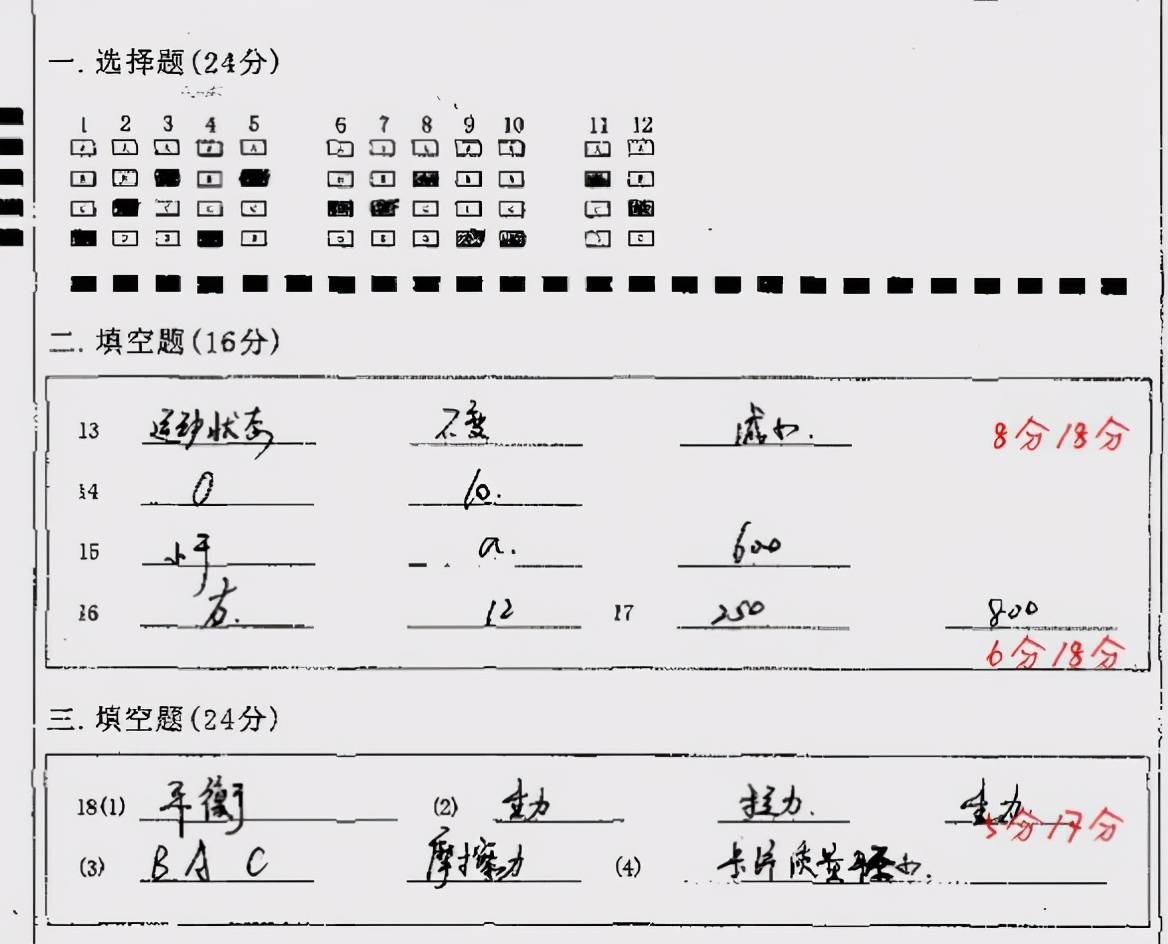 一.选择题(24分)
1 2 3 4 5 6 7 8 9 10 11 12
二.填空题(16分)
13 运动状态 不变 减小. 8分/8分
14 0 10.
15 水平 a. 600
16 方. 12 17 250 800
6分/8分
三.填空题(24分)
18(1) 平衡 (2) 重力 拉力. 重力 5分/7分
(3) B A C 摩擦力 (4) 卡片质量 小.